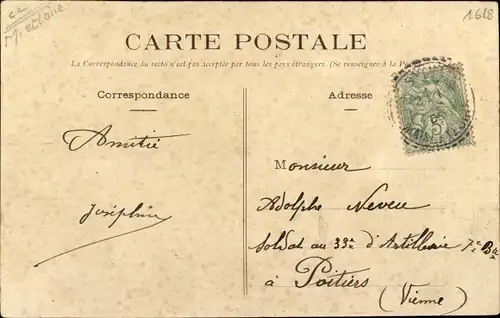 1628
CARTE POSTALE
La Correspondance du recto n'est pas acceptée par tous les pays étrangers. (Se renseigner à la
Correspondance
Adresse
Amitié
Monsieur
Joséphine
Adolphe Neveu
Soldat au 33e d'Artillerie 7e Bie
à Poitiers
(Vienne)